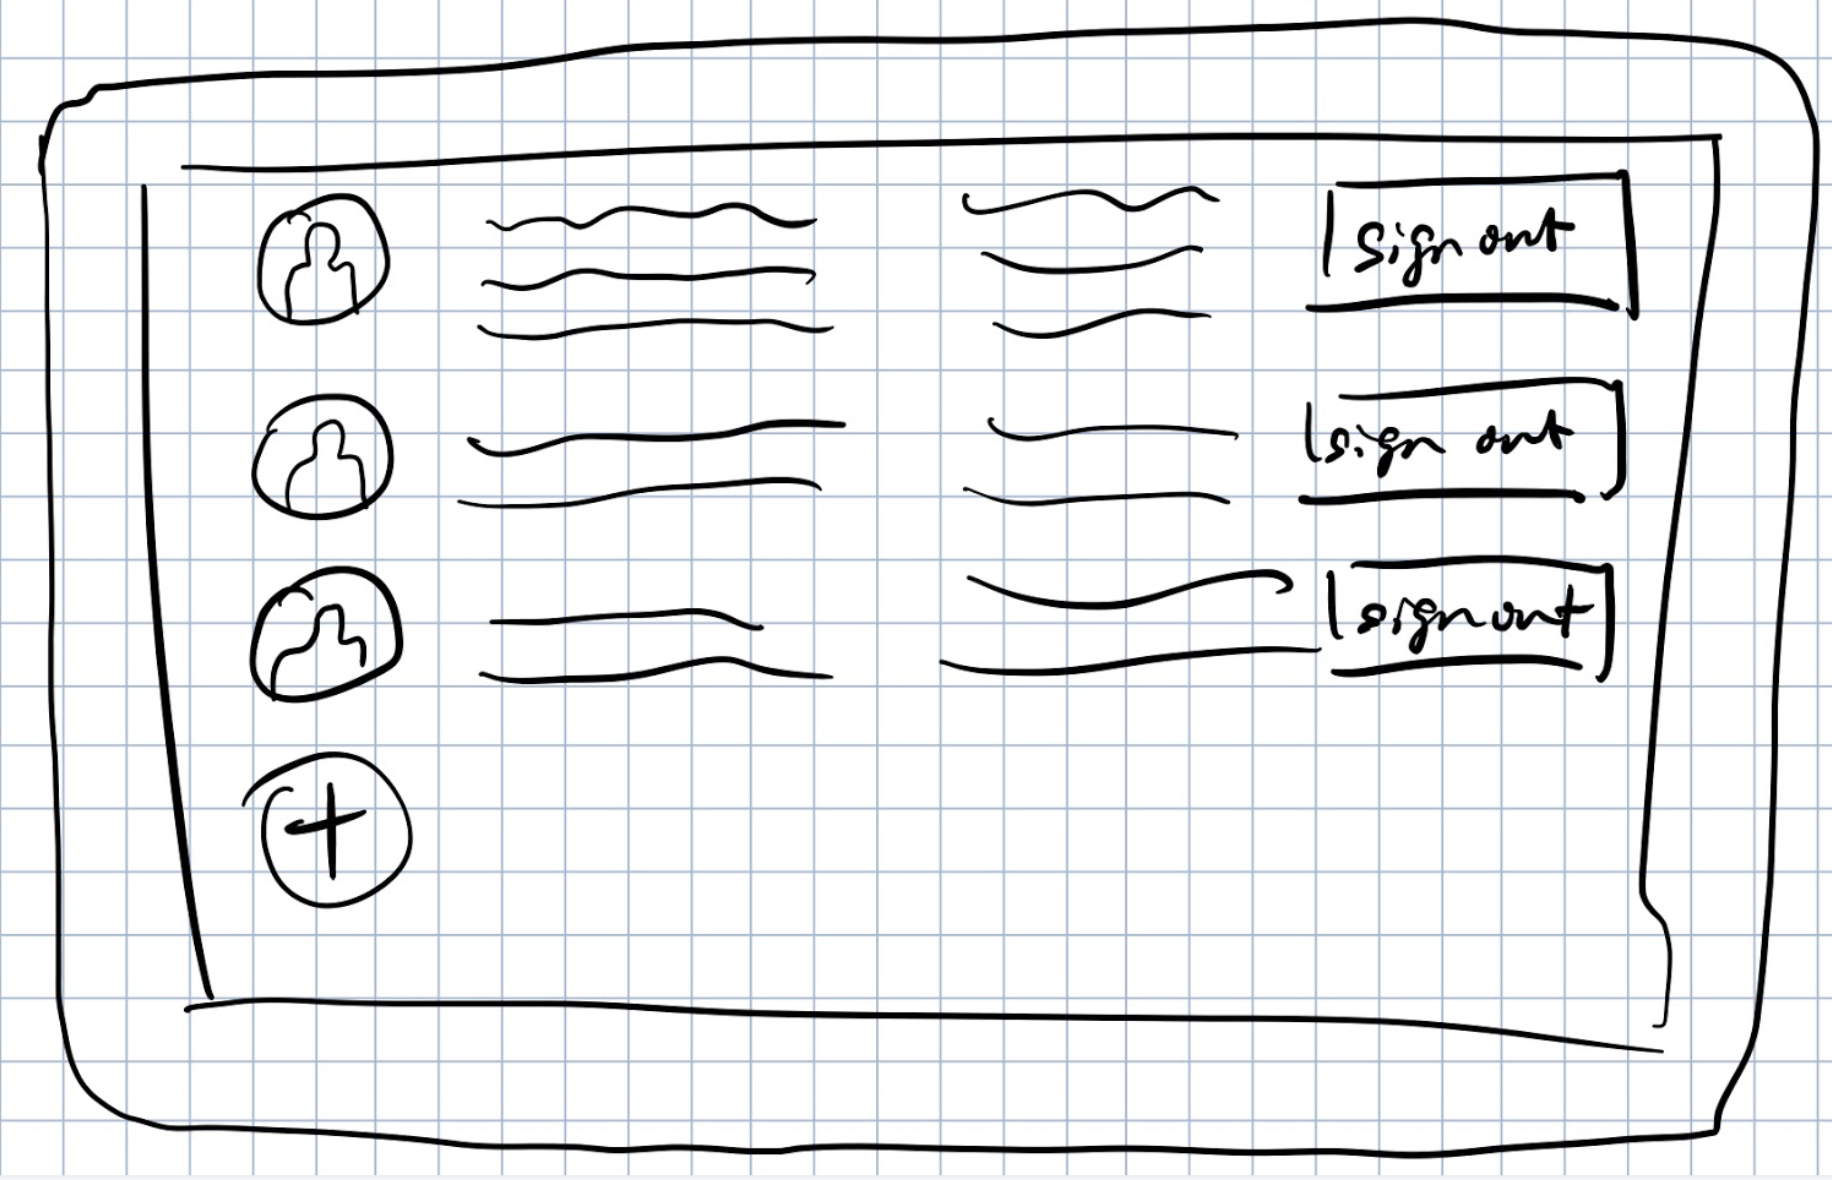 sign out
sign out
sign out